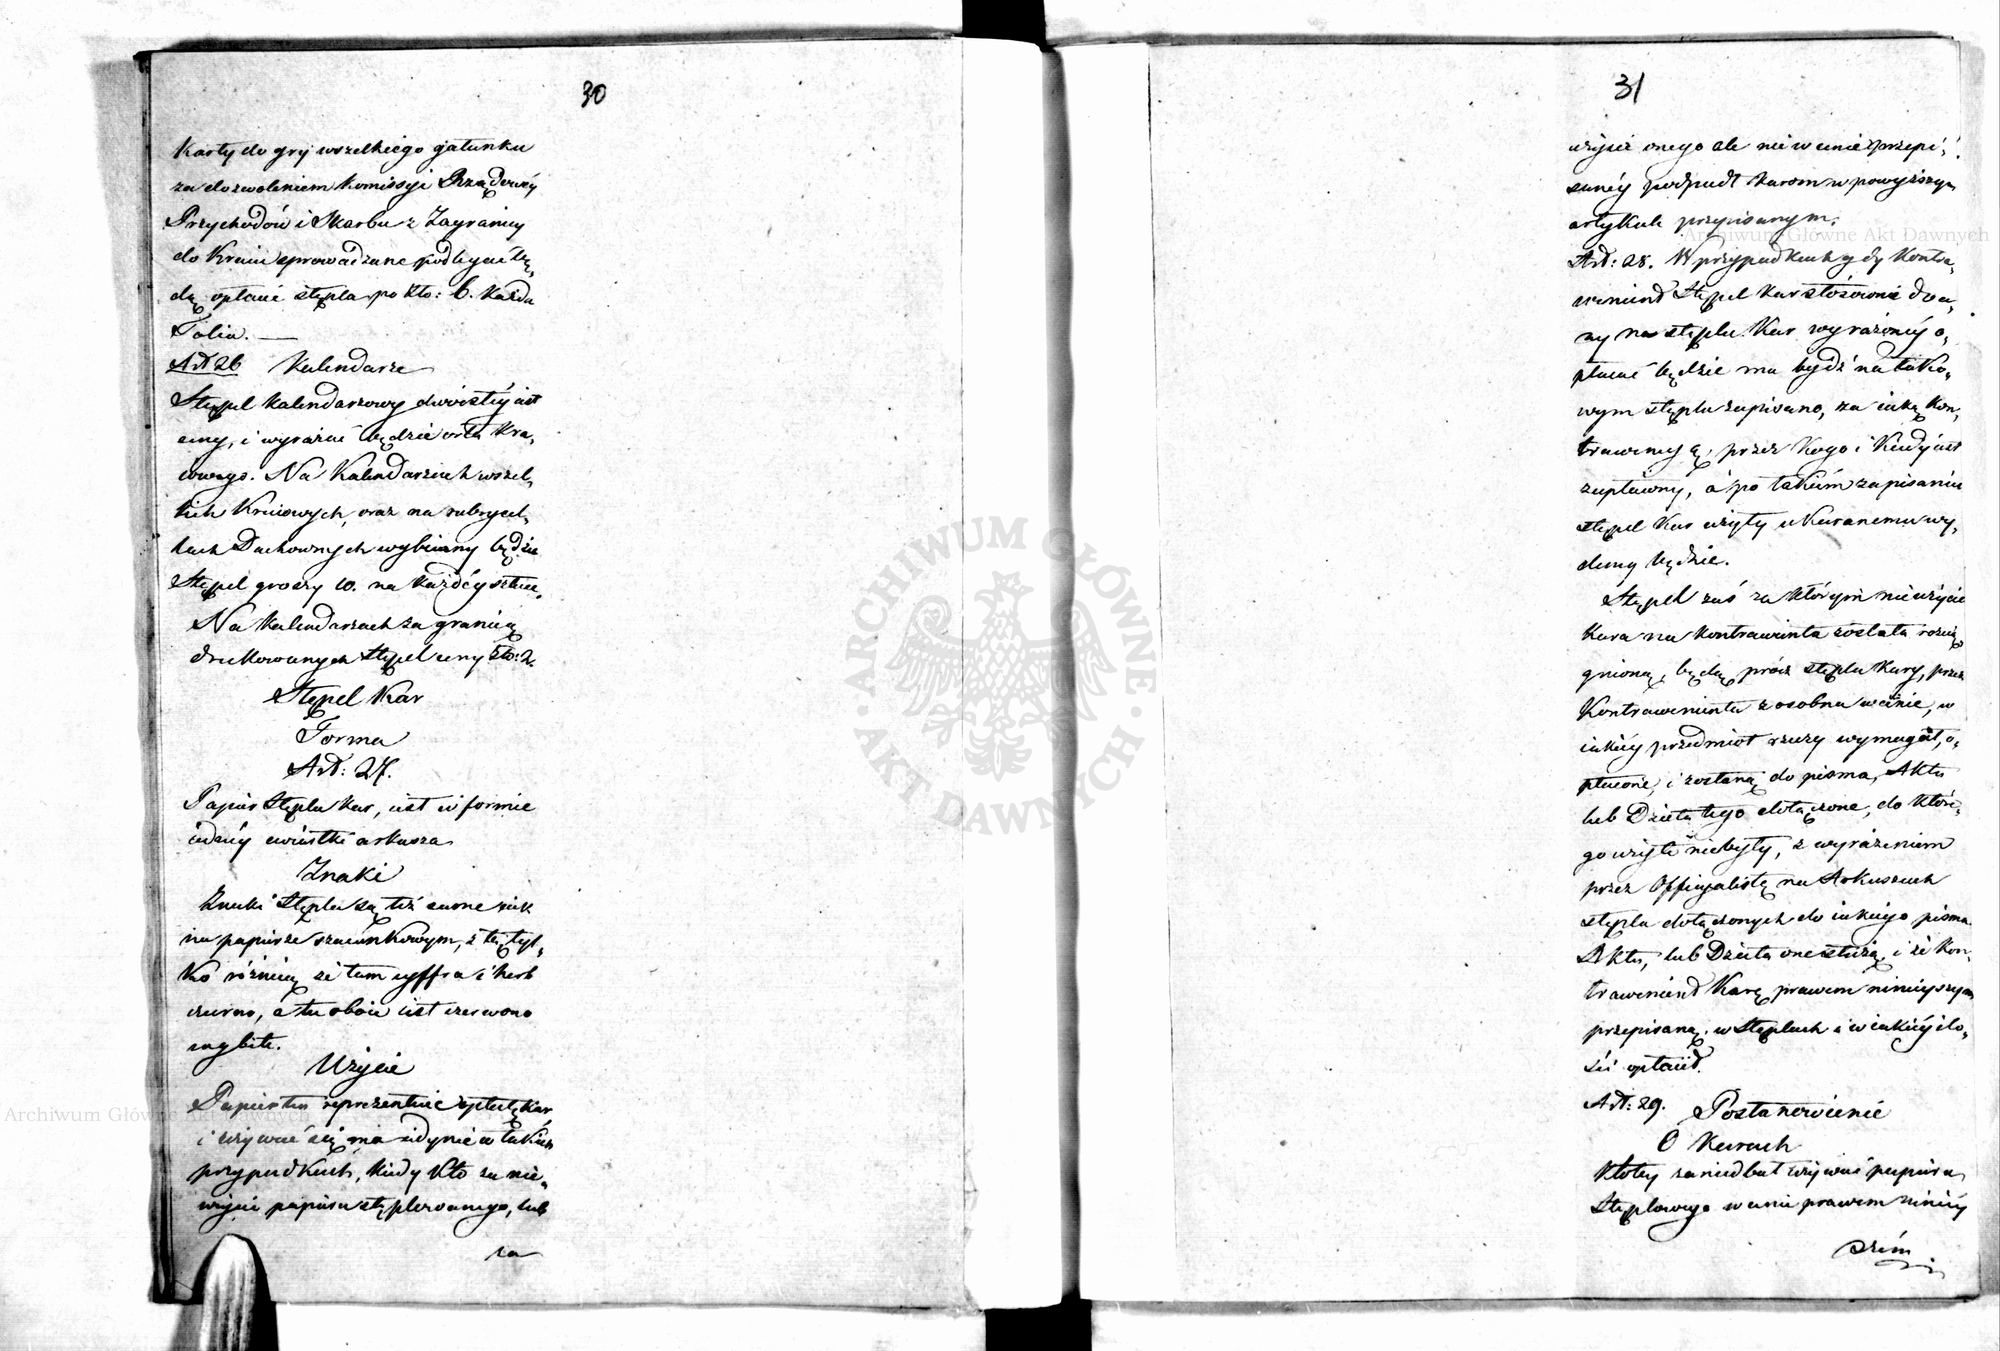 30
Karty do gry wszelkiego gatunku
za dozwoleniem Komissyi Rządowéy
Przychodów i Skarbu z Zagranicy
do Kraiu sprowadzane podlegać bę„
dą opłacie stępla po Zło: 6. Każda
Talia.
Art 26 Kalendarze
Stępel kalendarzowy dwoistéy iest
ceny, i wyrażać będzie orła Kra„
iowego. Na Kalendarzach wszel„
kich Kraiowych, oraz na rubrycel„
lach Duchownych wybiiany będzie
Stępel groszy 10. na Każdéy sztuce.
Na Kalendarzach za granicą
drukowanych Stępel ceny Zło: 2.
Stępel Kar
Forma
Art: 27.
Papier Stęplu kar, iest w formie
iednéy ćwiartki arkusza
Znaki
Znaki Stęplu są też same iak
na papierze szacunkowym, z tą tyl„
ko różnicą że tam cyffra i herb
czarno, a tu oboie iest czerwono
wybite.
Użycie
Papier ten reprezentuie opłatę kar
i używać się ma iedynie w takich
przypadkach, kiedy kto za nie„
użycie papieru stęplowanego, lub
za
31
użycie onego ale nie w cenie przepi„
sanéy podpadł karom w powyższym
artykule przepisanym.
Art: 28. W przypadkach gdy Kontra„
wenient Stępel kar stósownie do ce„
ny na stęplu Kar wyrażonéy o„
płacać będzie ma bydź na tako„
wym stęplu zapisano, za iaką kon„
trawencyą, przez kogo i kiedy iest
zapłacony, a po takiém zapisaniu
stępel Kar użyty ukaranemu wy„
dany będzie.
Stępel zaś za którym nieużycie
Kara na kontrawenta została rozcią
gnioną, będą prócz stęplu kary, przez
Kontrawenienta z osobna w cenie, w
iakiéy przedmiot rzeczy wymagał, o„
płacone, i zostaną do pisma, Aktu
lub Dzieła tego dołączone, do które„
go użyte niebyły, z wyrażeniem
przez Officyalistę na Arkuszach
stęplu dołączonych do iakiego pisma
Aktu, lub Dzieła one służą, i że Kon„
trawenient Karę prawem ninieyszym
przepisaną, w Stęplach i w iakiéy ilo„
ści opłacił.
Art: 29. Postanowienie
O Karach
Ktoby zaniedbał używać papieru
Stęplowego w cenie prawem niniéy
szém
Archiwum Główne Akt Dawnych
Archiwum Główne Akt Dawnych
ARCHIWUM GŁÓWNE · AKT DAWNYCH ·